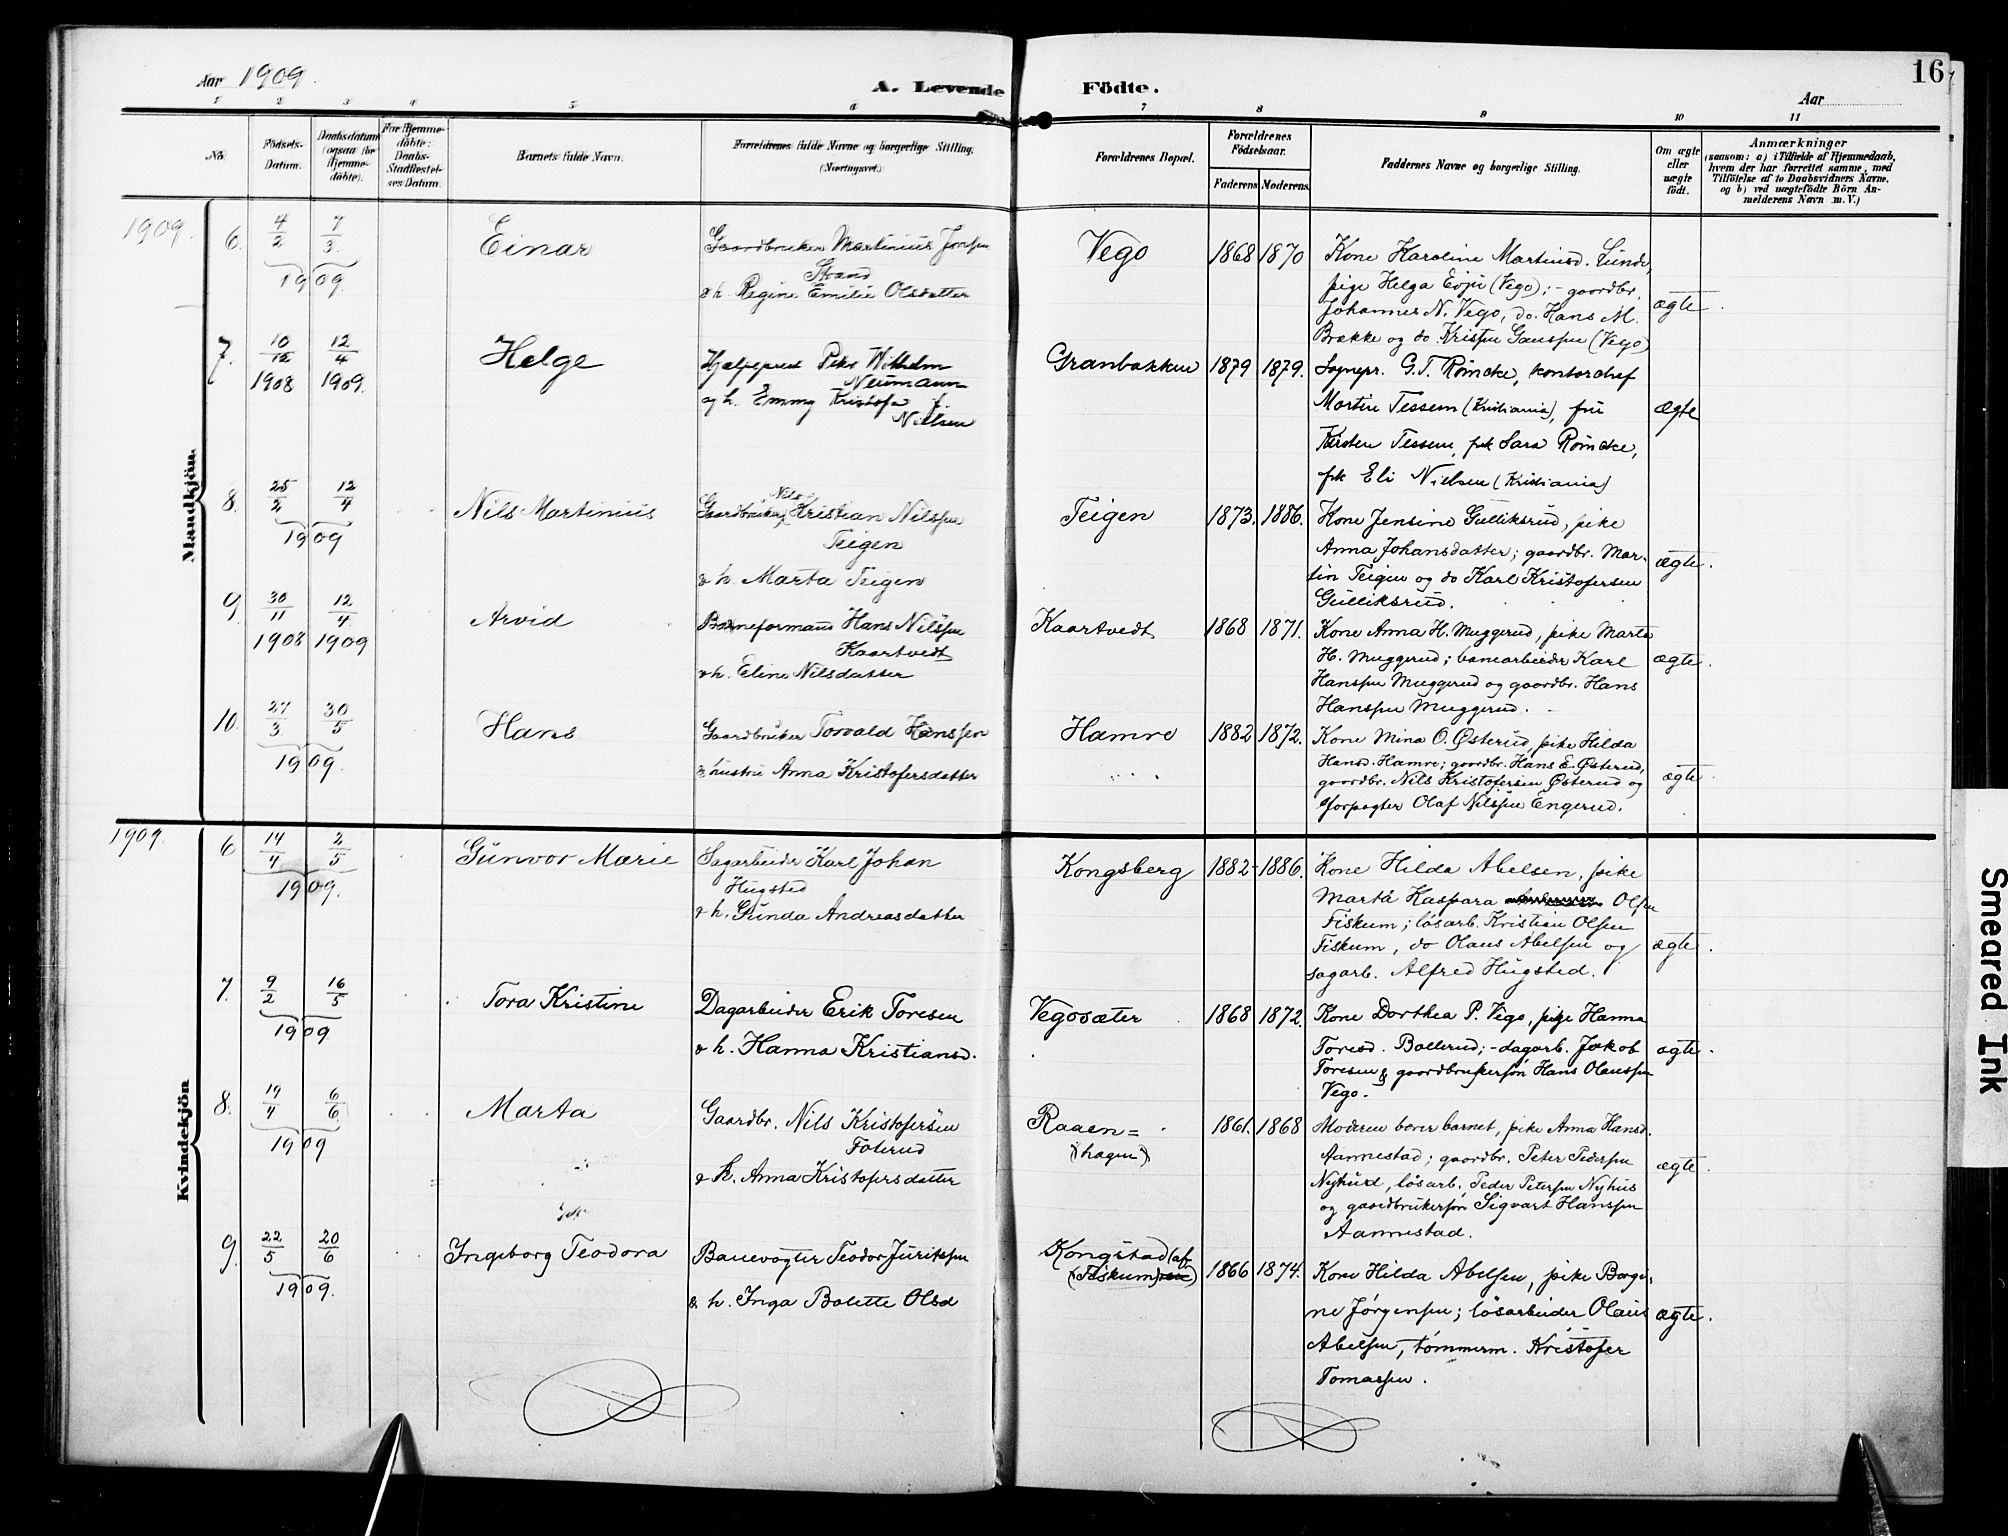 Aar 1909.
A. Levende Födte.
16
Aar
1 2 3 4 5 6 7 8 9 10 11
No.
Födsels-Datum.
Daabsdatum (ogsaa for Hjemme-döbte).
For Hjemme-döbte: Daabs-Stadfæstel-ses Datum.
Barnets fulde Navn.
Forældrenes fulde Navne og borgerlige Stilling. (Næringsvei.)
Forældrenes Bopæl.
Forældrenes Födselsaar.
Faderens. Moderens.
Faddernes Navne og borgerlige Stilling.
Om ægte eller uægte födt.
Anmærkninger
(saasom: a) i Tilfælde af Hjemmedaab,
hvem der har forrettet samme, med
Tilföielse af to Daabsvidners Navne,
og b) ved uægtefödte Börn An-
melderens Navn m. V.)
Mandkjön.
1909. 6 4/2 7/3 1909. Einar
Gaardbruker Martinius Jonsen
Strand
& h. Regine Emilie Olsdatter
Vego 1868 1870
Kone Karoline Martinsd. Lunde,
pige Helga (Vego); - gaardbr.
Johannes N. Vego, do. Hans M.
Brække og do Kristen Hanssen (Vego)
ægte.
7. 10/12 1908 12/4 1909. Helge
Hjelpeprest Peter Wilhelm
Neumann
og h. Emmy Kristofa f.
Nilsen
Granbakken 1879 1879.
Sognepr. G. T. Römcke, kontorchef
Martin Tessem (Kristiania), fru
Kirsten Tessem, frk Sara Römcke,
frk Eli Nielsen (Kristiania)
ægte
8. 25/2 12/4 1909 Nils Martinius
Nils
Gaardbruker Kristian Nilssen
Teigen
& h. Marta Teigen
Teigen 1873. 1886.
Kone Jensine Gulliksrud, pike
Anna Johansdatter; gaardbr. Mar-
tin Teigen og do Karl Kristofersen
Gulliksrud.
ægte.
9. 30/11 1908 12/4 1909 Arvid
Baneformand Hans Nilssen
Kaartvedt
& h. Eline Nilsdatter
Kaartvedt 1868 1871.
Kone Anna H. Muggerud, pike Marte
H. Muggerud; banearbeider Karl
Hanssen Muggerud og gaardbr. Hans
Hanssen Muggerud.
ægte.
10. 27/3 30/5 1909. Hans
Gaardbruker Torvald Hanssen
& hustru Anna Kristofersdatter
Hamre 1882 1872.
Kone Mina O. Østerud, pike Hilda
Hansd. Hamre; gaardbr. Hans E. Østerud,
gaardbr. Nils Kristofersen Østerud og
forpagter Olaf Nilssen Engerud.
ægte.
Kvindekjön
1909. 6 14/4 2/5 1909. Gunvor Marie
Sagarbeider Karl Johan
Hugsted
& h. Gunda Andreasdatter
Kongsberg 1882- 1886.
Kone Hilda Abelsen, pike
Marta Kaspara Olsen
Fiskum; løsarb. Kristian Olsen
Fiskum, do Olaus Abelsen og
sagarb. Alfred Hugsted.
ægte.
7. 9/2 16/5 1909 Tora Kristine
Dagarbeider Erik Toresen
& h. Hanna Kristiansd.
Vegosæter 1868 1872.
Kone Dorthea P. Vego, pige Hanna
Toresd. Bollerud; - dagarb. Jakob
Toresen & gaardbrukersøn Hans Olaussen
Vego.
ægte.
8. 19/4 6/6 1909 Marta
Gaardbr. Nils Kristofersen
Foterud
& h. Anna Kristofersdatter
Raaen=
(hagen) 1861. 1868
Moderen bærer barnet, pike Anna Hansd.
Aannestad; gaardbr. Peter Pedersen
Nyhus, løsarb. Peder Petersen Nyhus
og gaardbrukersøn Sigvart Hanssen
Aannestad.
ægte.
9. 22/5 20/6 1909. Ingeborg Teodora
Banevogter Teodor Juritssen
& h. Inga Bolette Olsd
Kongstad (af
Fiskum) 1866 1874.
Kone Hilda Abelsen, pike Borgi-
ne Jørgensen; løsarbeider Olaus
Abelsen, tömmerm. Kristofer
Tomassen.
ægte.
Smeared Ink